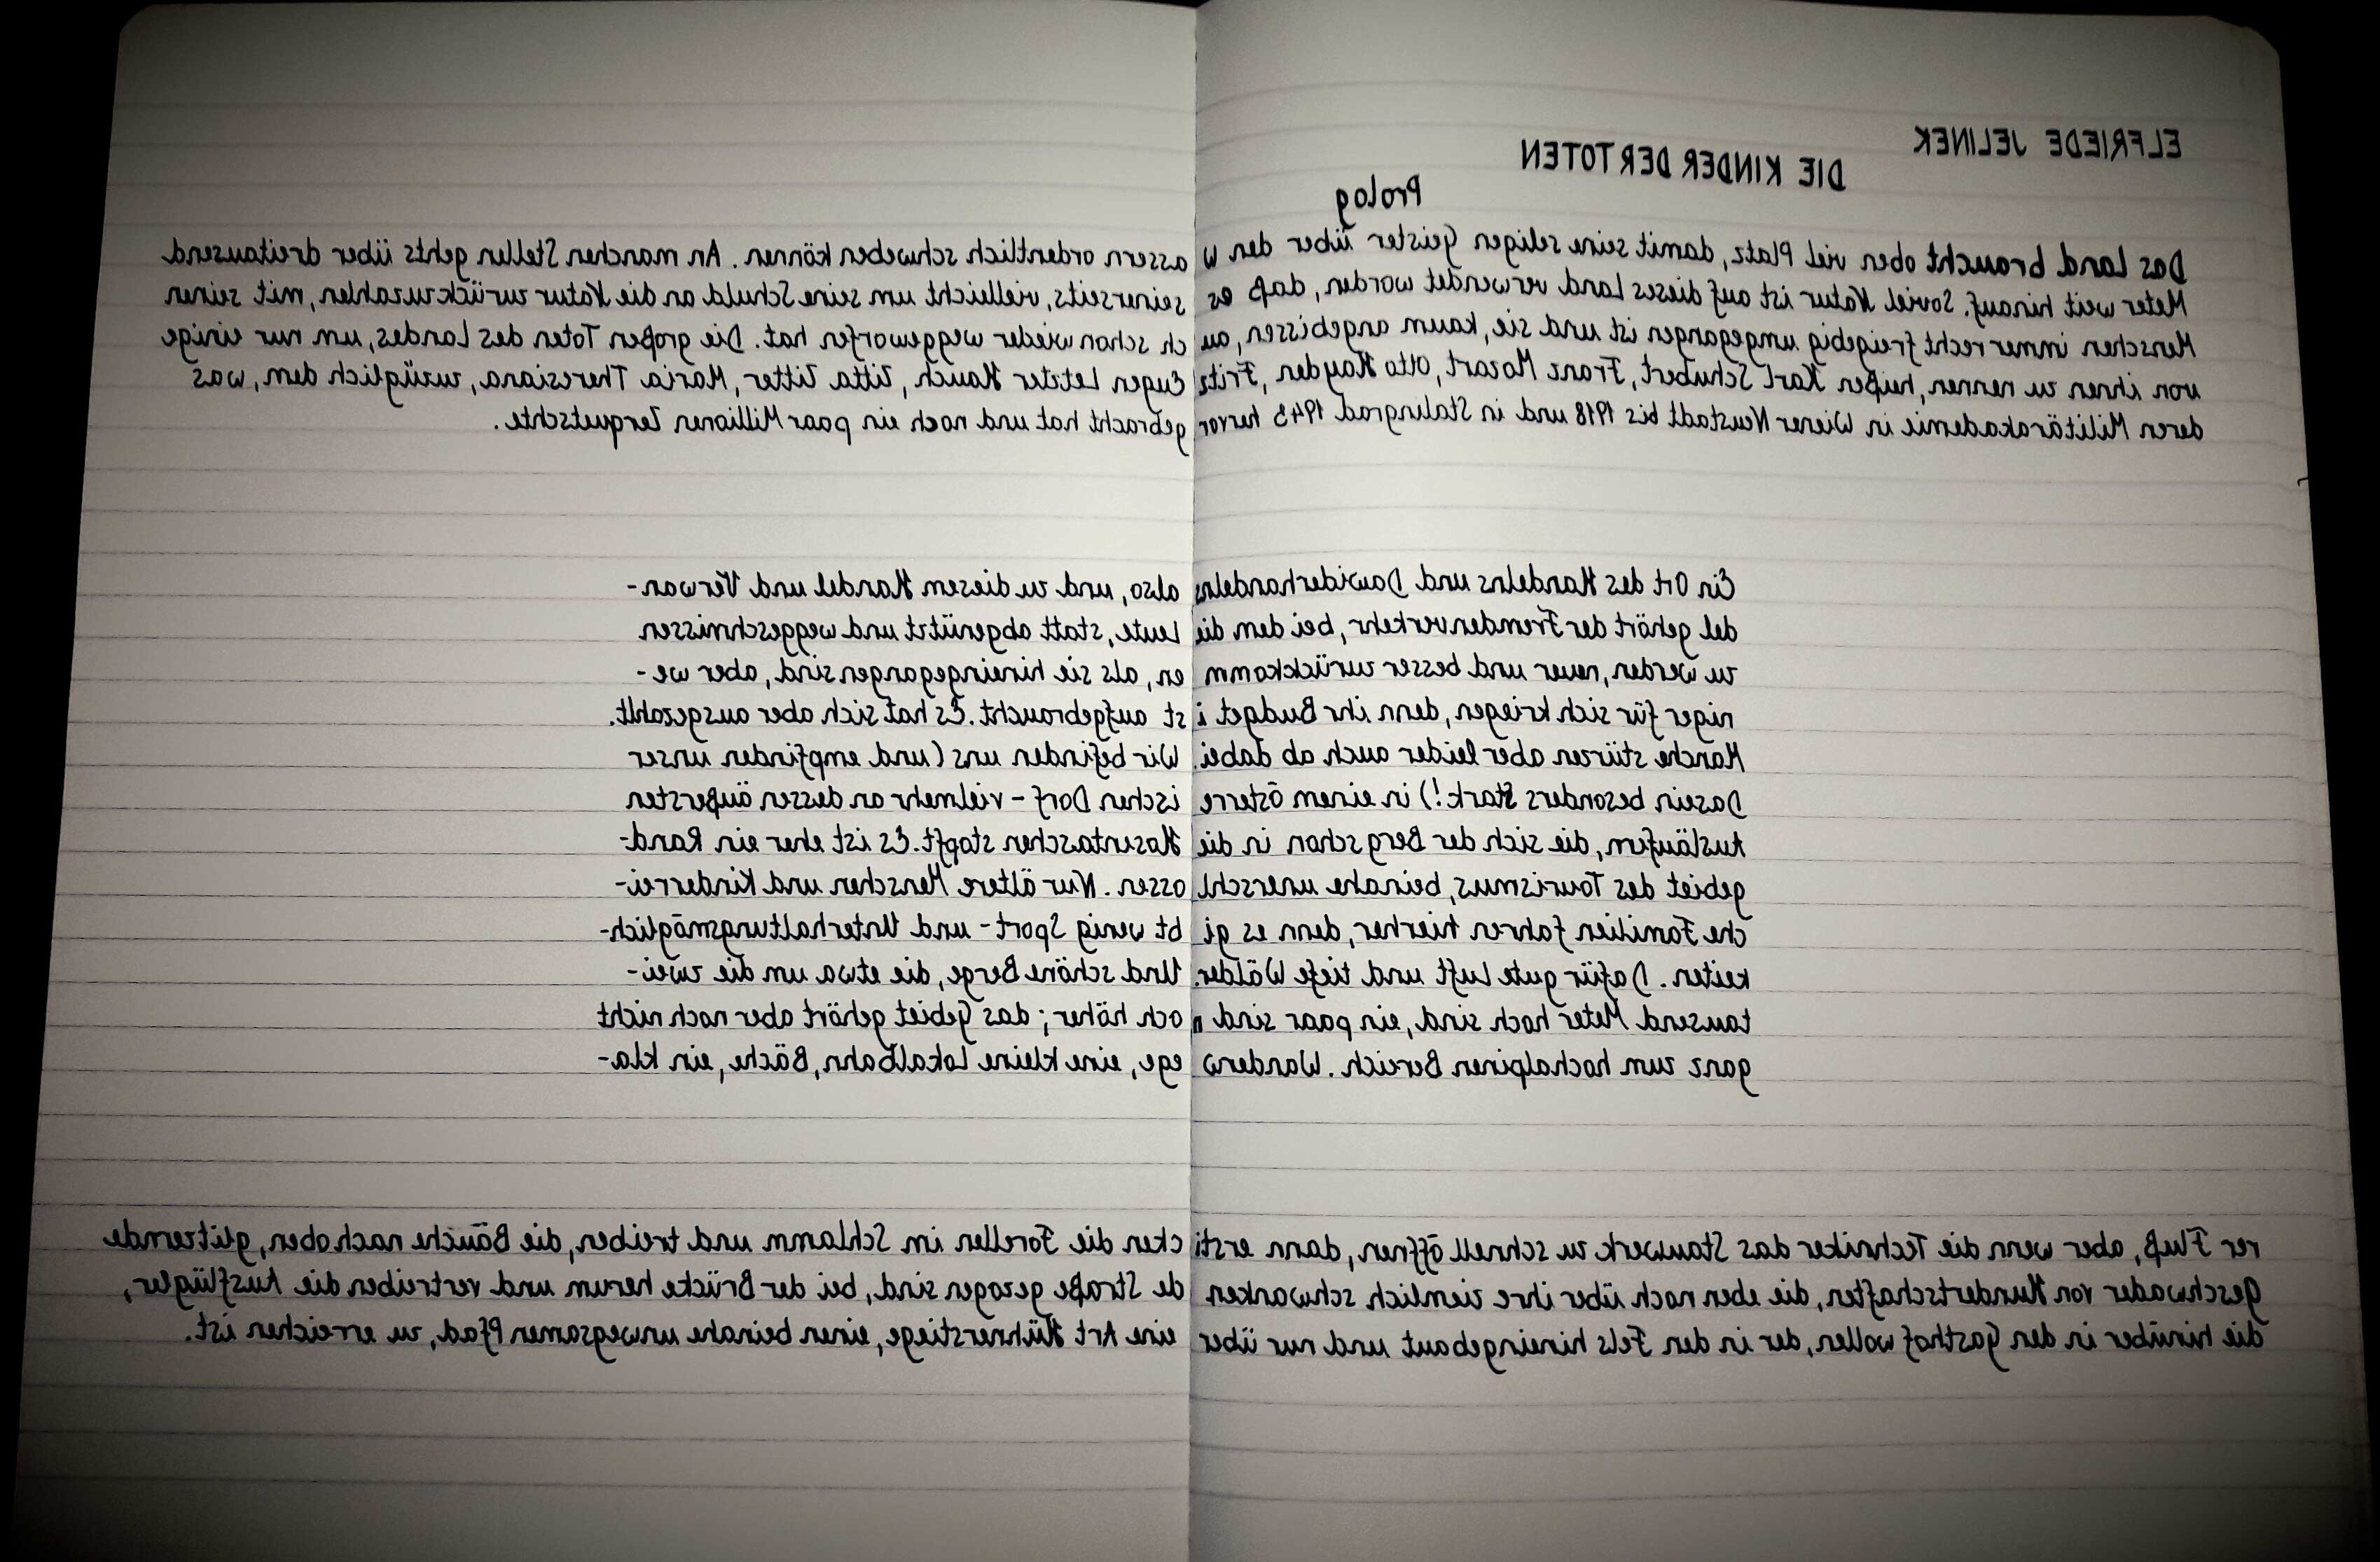 ELFRIEDE JELINEK
DIE KINDER DER TOTEN
Prolog
Das Land braucht oben viel Platz, damit seine seligen Geister über den Wassern ordentlich schweben können. An manchen Stellen gehts über dreitausend
Meter weit hinauf. Soviel Natur ist auf dieses Land verwendet worden, daß es seinerseits, vielleicht um seine Schuld an die Natur zurückzuzahlen, mit seinen
Menschen immer recht freigebig umgegangen ist und sie, kaum angebissen, auch schon wieder weggeworfen hat. Die großen Toten des Landes, um nur einige
von ihnen zu nennen, heißen Karl Schubert, Franz Mozart, Otto Hayden, Fritz Eugen Letzter Hauch, Zitta Zitter, Maria Theresiana, zuzüglich dem, was
deren Militärakademie in Wiener Neustadt bis 1918 und in Stalingrad 1943 hervorgebracht hat und noch ein paar Millionen Zerquetschte.
Ein Ort des Handelns und Dawiderhandelns also, und zu diesem Handel und Verwan-
del gehört der Fremdenverkehr, bei dem die Leute, statt abgenützt und weggeschmissen
zu werden, neuer und besser zurückkommen, als sie hineingegangen sind, aber we-
niger für sich kriegen, denn ihr Budget ist aufgebraucht. Es hat sich aber ausgezahlt.
Manche stürzen aber leider auch ab dabei. Wir befinden uns (und empfinden unser
Dasein besonders stark!) in einem österreischen Dorf - vielmehr an dessen äußersten
Ausläufern, die sich der Berg schon in die Hosentaschen stopft. Es ist eher ein Rand-
gebiet des Tourismus, beinahe unerschlossen. Nur ältere Menschen und kinderrei-
che Familien fahren hierher, denn es gibt wenig Sport- und Unterhaltungsmöglich-
keiten. Dafür gute Luft und tiefe Wälder. Und schöne Berge, die etwa um die zwei-
tausend Meter hoch sind, ein paar sind noch höher; das Gebiet gehört aber noch nicht
ganz zum hochalpinen Bereich. Wanderwege, eine kleine Lokalbahn, Bäche, ein kla-
rer Fluß, aber wenn die Techniker das Stauwerk zu schnell öffnen, dann ersticken die Forellen im Schlamm und treiben, die Bäuche nach oben, glitzernde
Geschwader von Hundertschaften, die eben noch über ihre ziemlich schwankende Straße gezogen sind, bei der Brücke herum und vertreiben die Ausflügler,
die hinüber in den Gasthof wollen, der in den Fels hineingebaut und nur über eine Art Hühnerstiege, einen beinahe unwegsamen Pfad, zu erreichen ist.